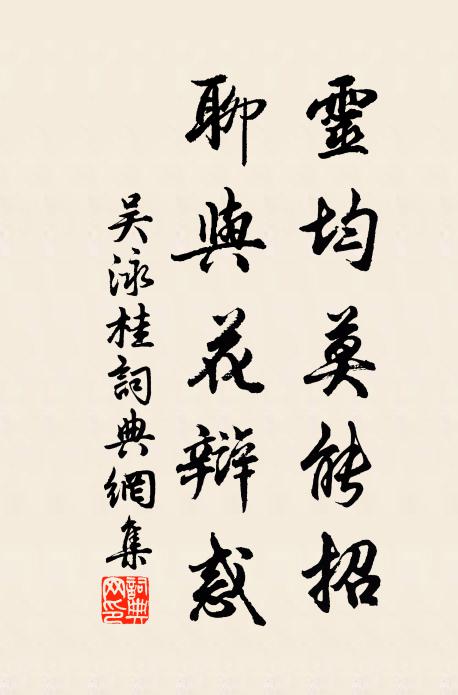 靈均莫能招
聊與花辯惑
吴泳桂詞典網集
詞典网印